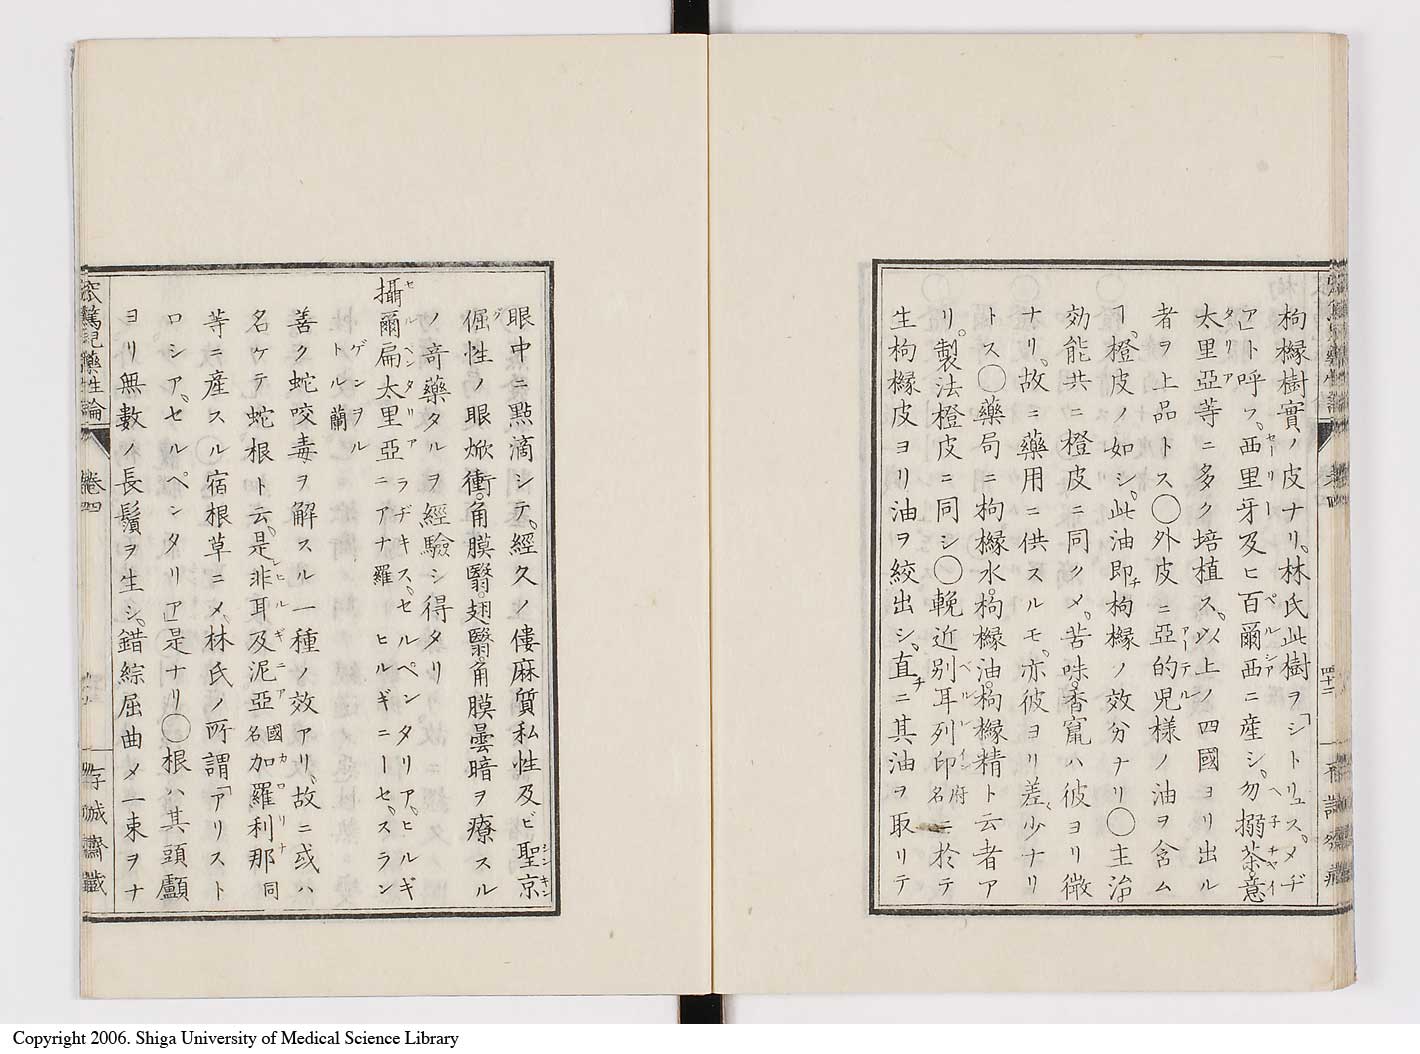 枸櫞樹實ノ皮ナリ、林氏此樹ヲ「シトリュス、メヂ
ア」ト呼フ、西里牙及ヒ百爾西ニ産シ、勿搦茶、意
太里亞等ニ多ク培植ス、以上ノ四國ヨリ出ル
者ヲ上品トス〇外皮ニ亞的児樣ノ油ヲ含ム
ヿ、橙皮ノ如シ、此油即チ枸櫞ノ效分ナリ〇主治
効能共ニ橙皮ニ同クメ、苦味、香竄ハ彼ヨリ微
ナリ、故ニ藥用ニ供スルモ、亦彼ヨリ差少ナリ
トス〇藥局ニ枸櫞水、枸櫞油、枸櫞精ト云者ア
リ、製法橙皮ニ同シ〇輓近別耳列印府名ニ於テ
生枸櫞皮ヨリ油ヲ絞出シ、直チニ其油ヲ取リテ
眼中ニ點滴シテ、經久ノ僂麻質私性及ビ聖京
倔性ノ眼焮衝、角膜翳、翅翳、角膜曇暗ヲ療スル
ノ竒藥タルヲ經驗シ得タリ
攝爾扁太里亞ラヂキス、セルペンタリア、ヒルギ
ニアナ羅 ヒルギニーセ、スラン
ゲンヲル
トル蘭
善ク蛇咬毒ヲ解スル一種ノ效アリ、故ニ或ハ
名ケテ蛇根ト云、是非耳及泥亞國名加羅利那同
等ニ産スル宿根草ニメ、林氏ノ所謂「アリスト
ロシア、セルペンタリア」是ナリ〇根ハ其頭顱
ヨリ無數ノ長鬚ヲ生シ、錯綜屈曲メ一束ヲナ
藥性論
卷四
存誠齋藏
Copyright 2006. Shiga University of Medical Science Library